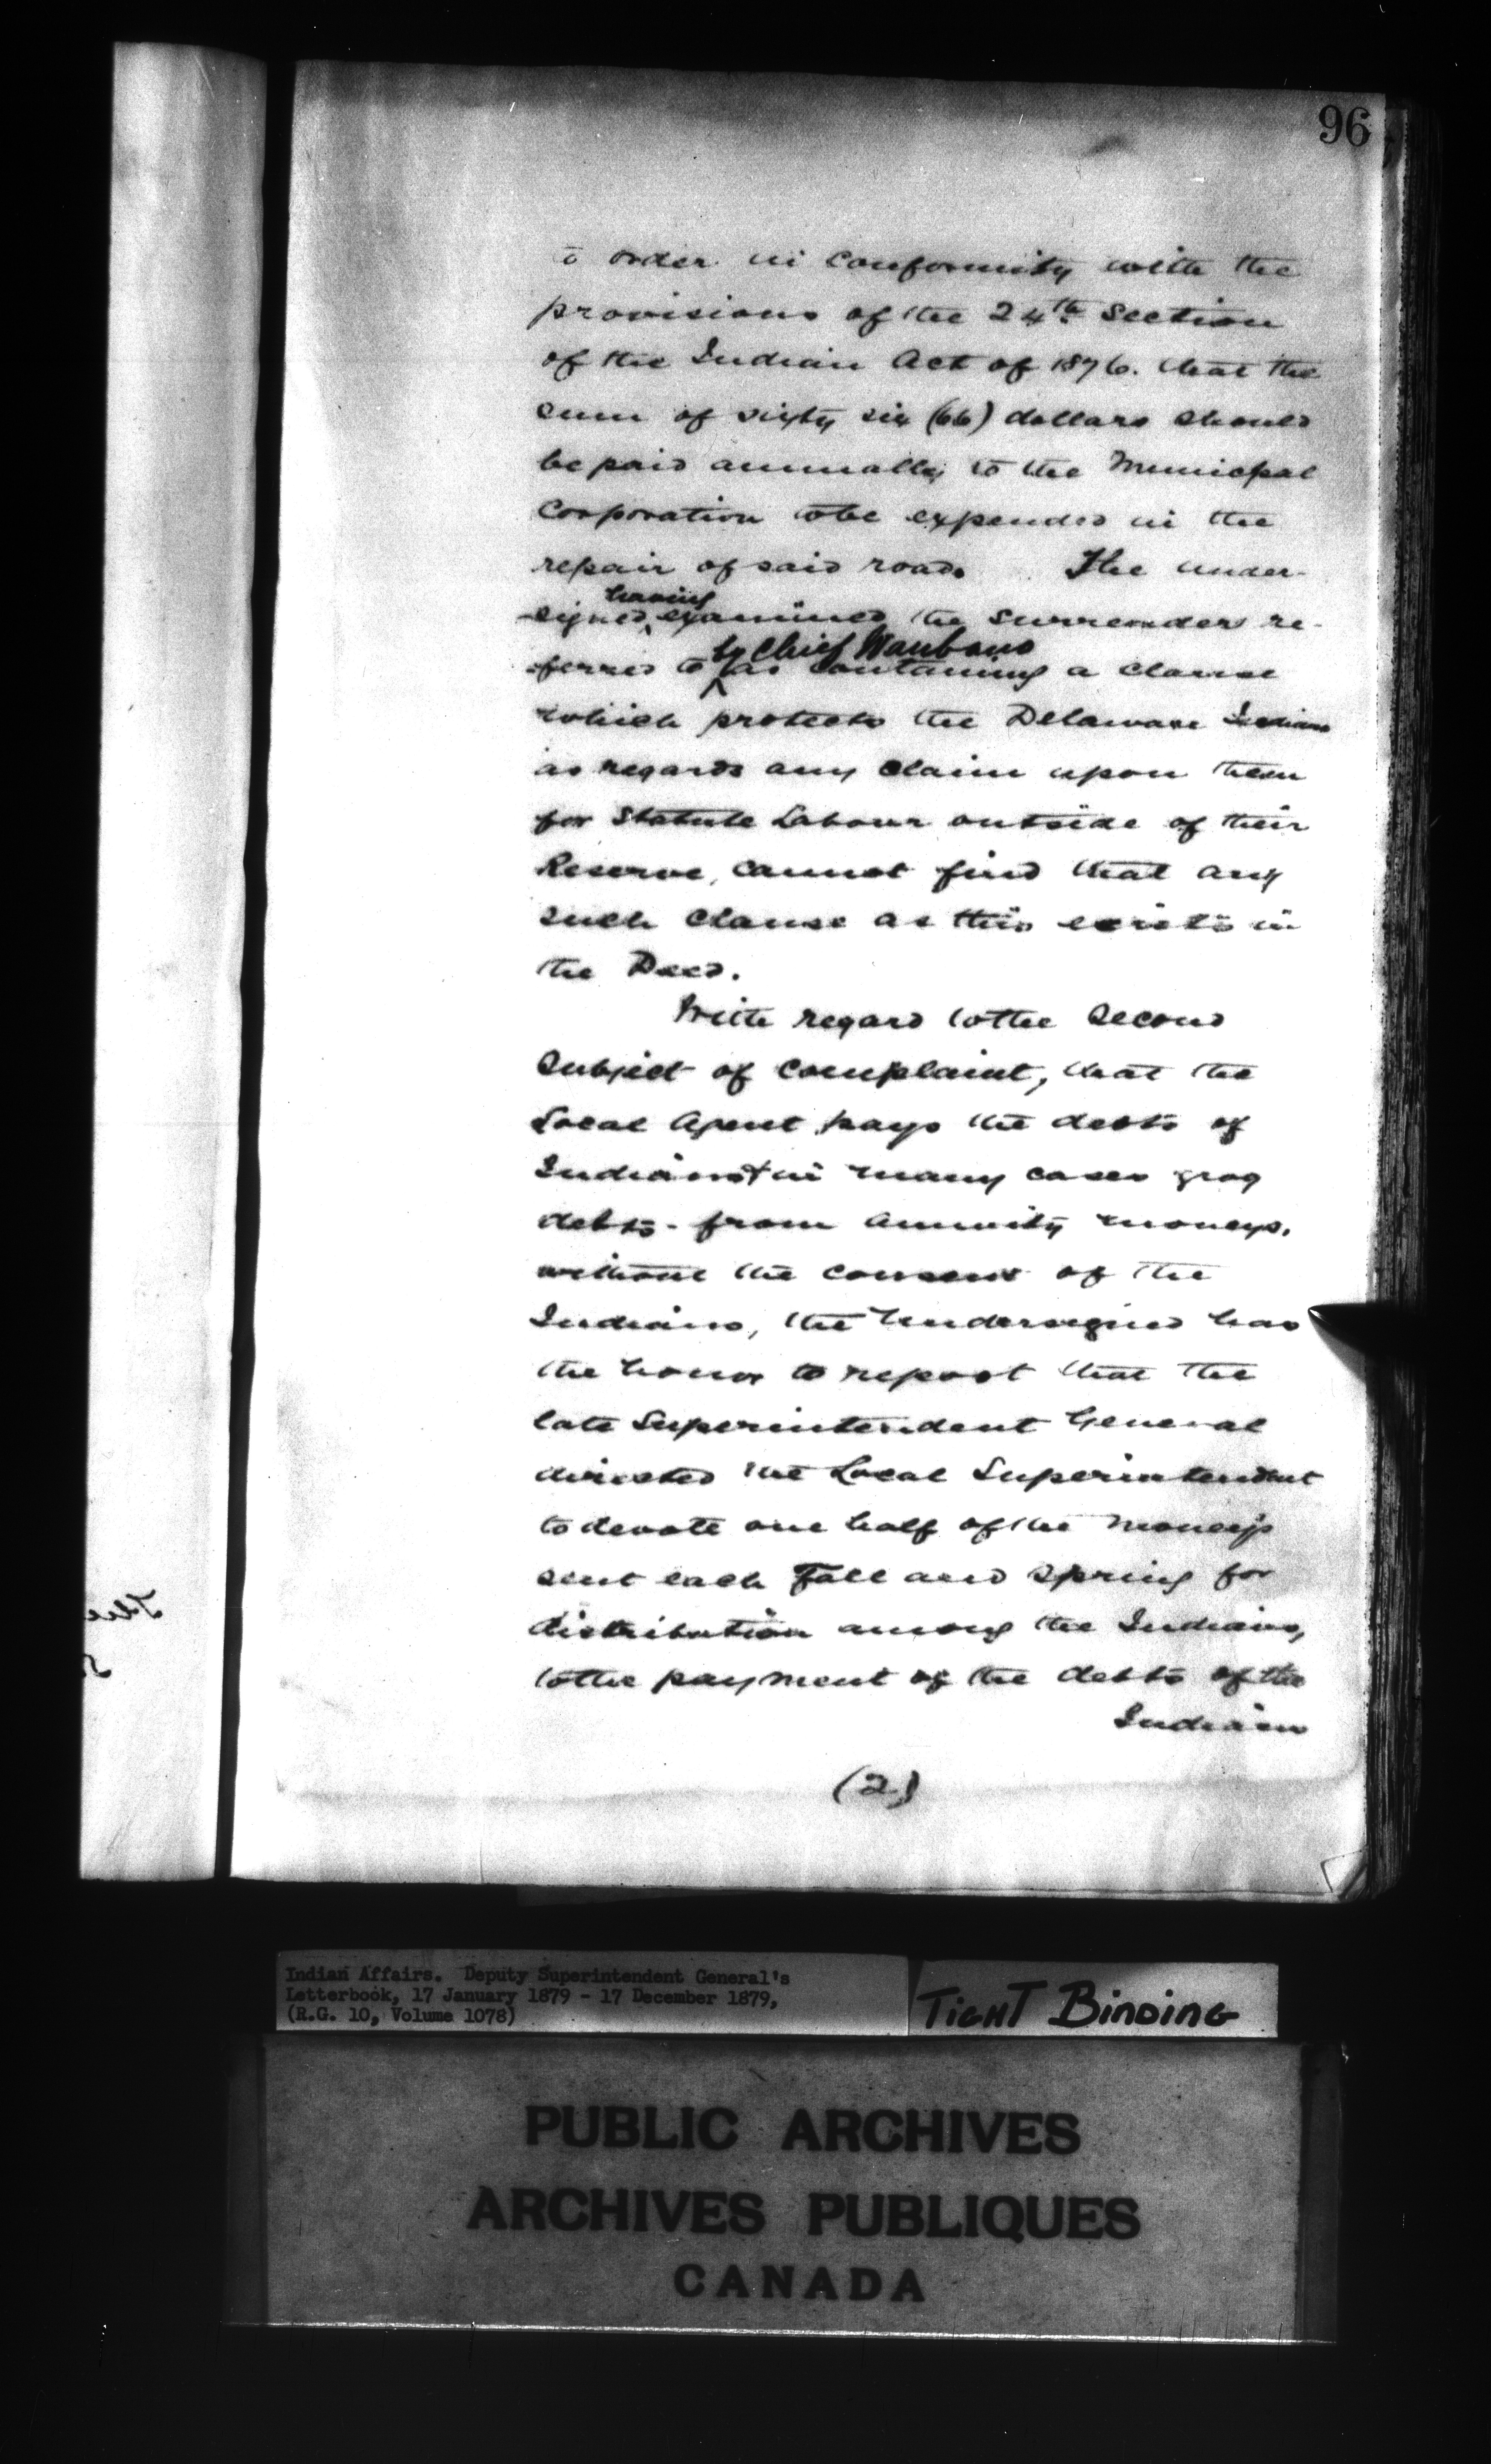 96
to order in conformity with the
provisions of the 24th Section
of the Indian Act of 1876. that the
sum of sixty six (66) dollars should
be paid annually to the Municipal
Corporation to be expended in the
repair of said road. The under-
having
signed examined the surrender re-
by Chief Waubano
ferred to as containing a clause
which protects the Delaware Indians
as regards any claim upon them
for Statute Labour outside of their
Reserve, cannot find that any
such clause as this exists in
the Deed.
With regard to the second
subject of complaint, that the
Local Agent pays the debts of
Indians & in many cases grog
debts - from annuity moneys,
without the consent of the
Indians, the Undersigned has
the honor to report that the
late Superintendent General
directed the Local Superintendent
to devote one half of the moneys
sent each Fall and Spring for
distribution among the Indians,
to the payment of the debts of the
Indians
(2)
Indian Affairs. Deputy Superintendent General's
Letterbook, 17 January 1879 - 17 December 1879,
(R.G. 10, Volume 1078)
TIGHT BINDING
PUBLIC ARCHIVES
ARCHIVES PUBLIQUES
CANADA